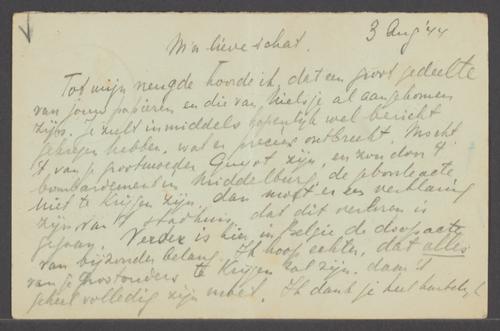 3 Aug '44
M'n lieve schat.
Tot mijn vreugde hoorde ik, dat een groot gedeelte
van jouw papieren en die van Nielsje al aangekomen
zijn. Je zult inmiddels hopenlijk wel bericht
gekregen hebben, wat er precies ontbreekt. Mocht
't van je grootmoeder Guyot zijn, en zou door 't
bombardement in Middelburg, de geboorteacte
niet te krijgen zijn, dan moet er een verklaring
zijn van 't stadhuis, dat dit verloren is
gegaan. Verder is hier in België de doopacte
van bijzonder belang. Ik hoop echter, dat alles
van je grootouders te krijgen zal zijn, daar 't
geheel volledig zijn moet. Ik dank je heel hartelijk